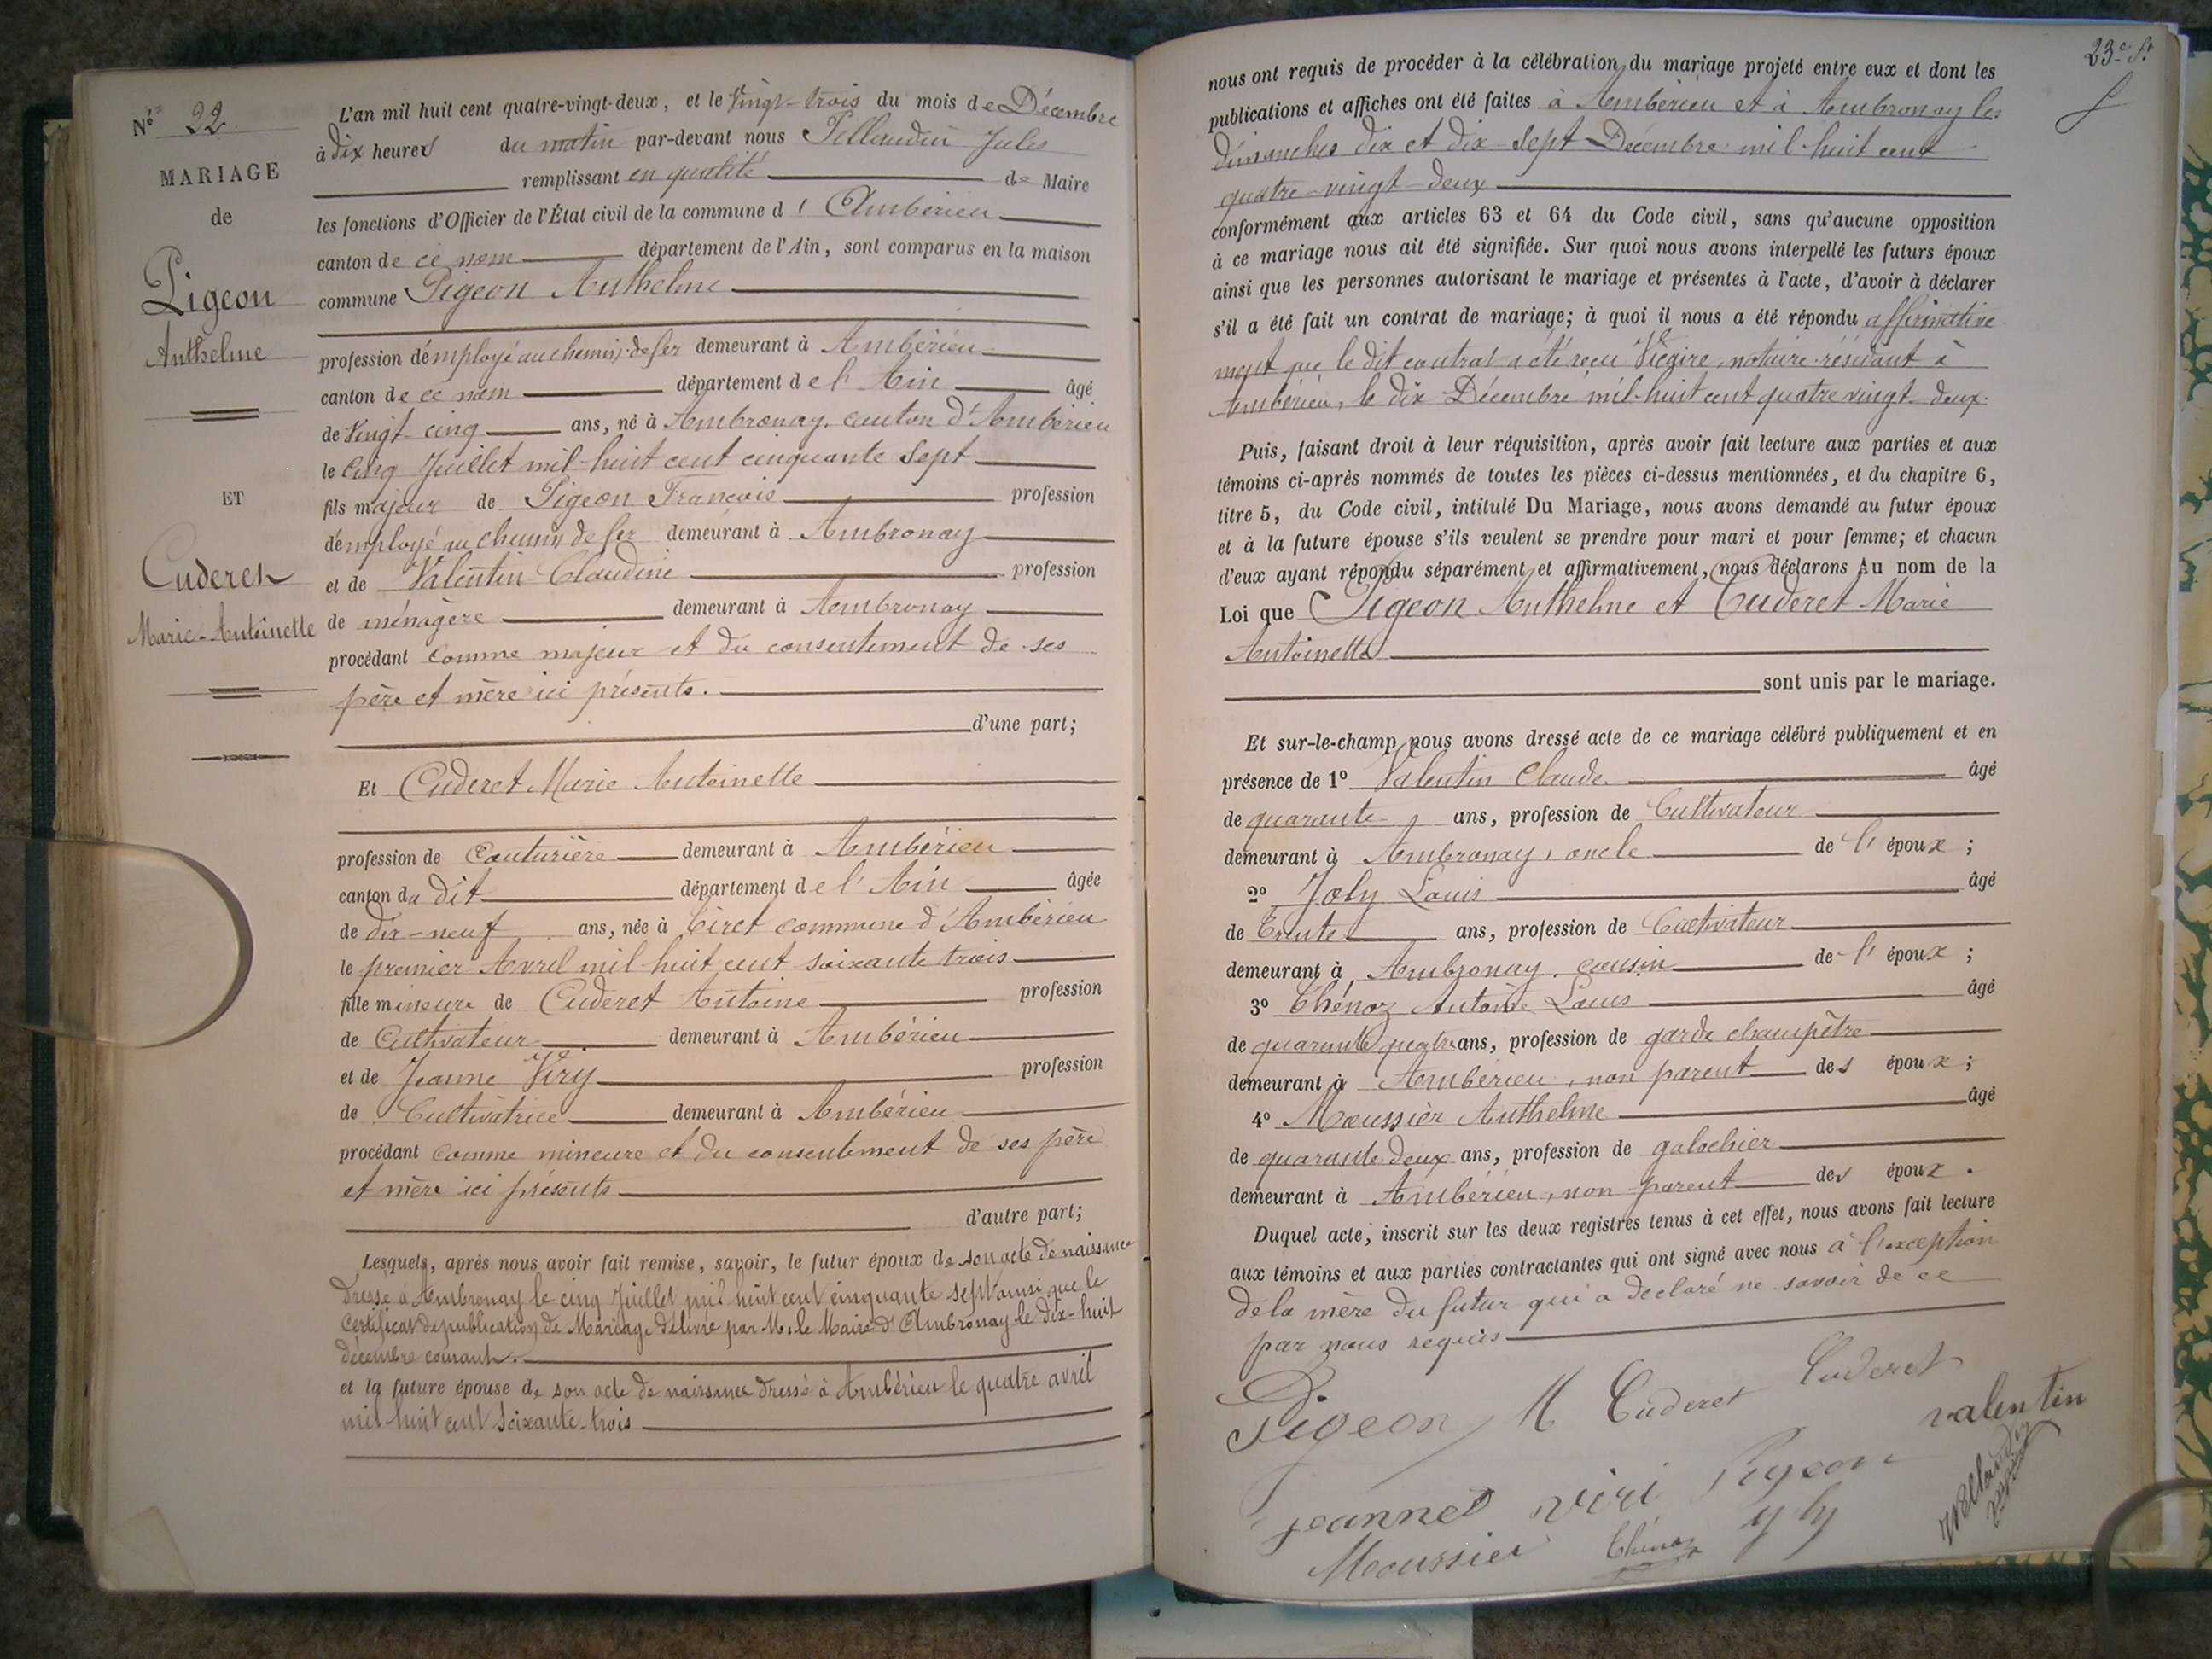 N° 22
MARIAGE
de
Pigeon
Anthelme
ET
Cuderet
Marie-Antoinette
L'an mil huit cent quatre-vingt-deux, et le Vingt-trois du mois de Décembre
à dix heures du matin par-devant nous Pellaudin Jules
remplissant en qualité de Maire
les fonctions d'Officier de l'État civil de la commune d'Ambérieu
canton de ce nom département de l'Ain, sont comparus en la maison
commune Pigeon Anthelme
profession d'employé au chemin de fer demeurant à Ambérieu
canton de ce nom département de l'Ain âgé
de Vingt cinq ans, né à Ambronay, canton d'Ambérieu
le Cinq Juillet mil huit cent cinquante Sept
fils majeur de Pigeon François profession
d'employé au chemin de fer demeurant à Ambronay
et de Valentin Claudine profession
de ménagère demeurant à Ambronay
procédant comme majeur et du consentement de ses
père et mère ici présents.
d'une part;
Et Cuderet Marie Antoinette
profession de Couturière demeurant à Ambérieu
canton du dit département de l'Ain âgée
de dix-neuf ans, née à Tiret commune d'Ambérieu
le premier Avril mil huit cent soixante trois
fille mineure de Cuderet Antoine profession
de Cultivateur demeurant à Ambérieu
et de Jeanne Viry profession
de Cultivatrice demeurant à Ambérieu
procédant comme mineure et du consentement de ses père
et mère ici présents
d'autre part;
Lesquels, après nous avoir fait remise, savoir, le futur époux de son acte de naissance
dressé à Ambronay le cinq Juillet mil huit cent cinquante sept ainsi que le
Certificat de publication de Mariage délivré par M. le Maire d'Ambronay le dix-huit
décembre courant.
et la future épouse de son acte de naissance dressé à Ambérieu le quatre avril
mil huit cent soixante-trois
23e f.
nous ont requis de procéder à la célébration du mariage projeté entre eux et dont les
publications et affiches ont été faites à Ambérieu et à Ambronay les
dimanches dix et dix-sept Décembre mil huit cent
quatre-vingt-deux
conformément aux articles 63 et 64 du Code civil, sans qu'aucune opposition
à ce mariage nous ait été signifiée. Sur quoi nous avons interpellé les futurs époux
ainsi que les personnes autorisant le mariage et présentes à l'acte, d'avoir à déclarer
s'il a été fait un contrat de mariage; à quoi il nous a été répondu affirmative
ment que le dit contrat a été reçu notaire résidant à
Ambérieu, le dix Décembre mil huit cent quatre vingt deux.
Puis, faisant droit à leur réquisition, après avoir fait lecture aux parties et aux
témoins ci-après nommés de toutes les pièces ci-dessus mentionnées, et du chapitre 6,
titre 5, du Code civil, intitulé Du Mariage, nous avons demandé au futur époux
et à la future épouse s'ils veulent se prendre pour mari et pour femme; et chacun
d'eux ayant répondu séparément et affirmativement, nous déclarons Au nom de la
Loi que Pigeon Anthelme et Cuderet Marie
Antoinette
sont unis par le mariage.
Et sur-le-champ nous avons dressé acte de ce mariage célébré publiquement et en
présence de 1° Valentin Claude âgé
de quarante ans, profession de Cultivateur
demeurant à Ambronay, oncle de l'époux;
2° Joly Louis âgé
de Trente ans, profession de Cultivateur
demeurant à Ambronay, cousin de l'époux;
3° Chénoz Antoine Louis âgé
de quarante quatre ans, profession de garde champêtre
demeurant à Ambérieu, non parent des époux;
4° Moussier Anthelme âgé
de quarante deux ans, profession de galochier
demeurant à Ambérieu, non parent des époux.
Duquel acte, inscrit sur les deux registres tenus à cet effet, nous avons fait lecture
aux témoins et aux parties contractantes qui ont signé avec nous à l'exception
de la mère du futur qui a déclaré ne savoir de ce
par nous requis
Pigeon M Cuderet Cuderet
valentin
jeannet viri Pigeon
Moussier Chénoz